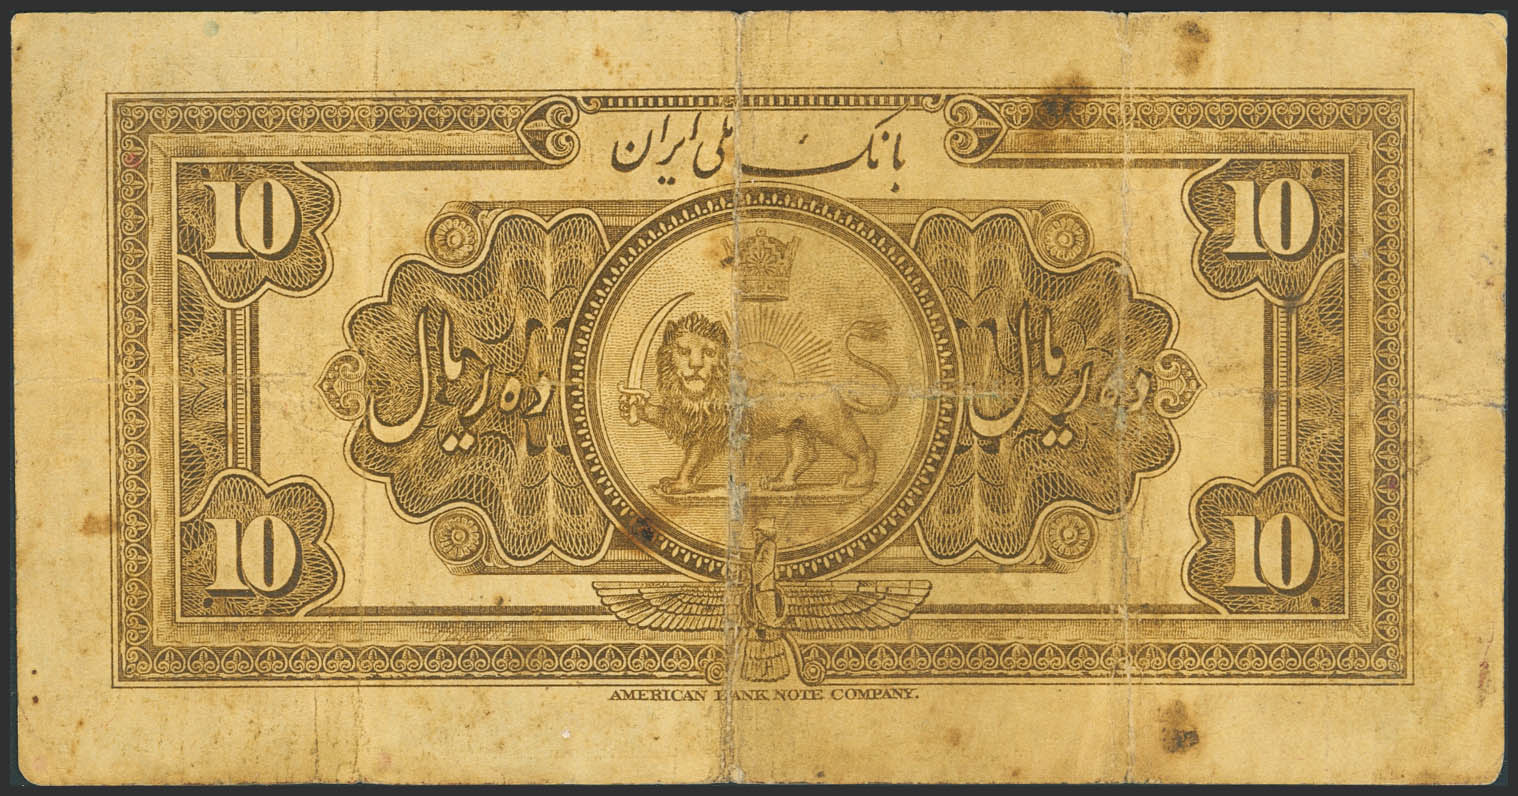 بانک ملی ایران
10 10
ده ریال ده ریال
10 10
AMERICAN BANK NOTE COMPANY.